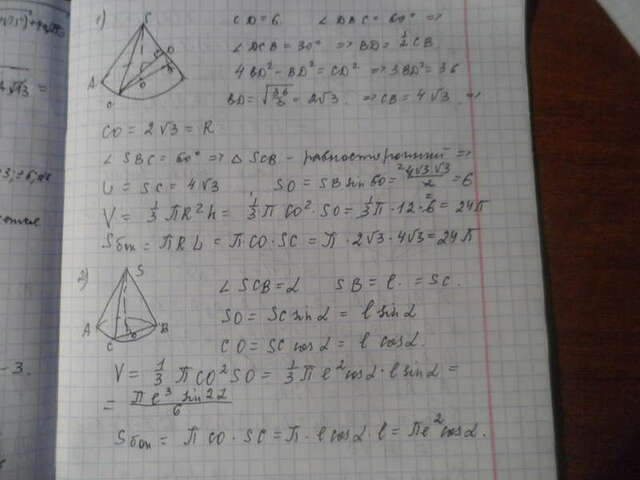 1) CD = 6. ∠DBC = 60° ⇒
∠DCB = 30° ⇒ BD = 1/2 CB
4BD² - BD² = CD² ⇒ 3BD² = 36
BD = √(36/3) = 2√3. ⇒ CB = 4√3. ⇒
CO = 2√3 = R
∠SBC = 60° ⇒ △SCB - равносторонний ⇒
L = SC = 4√3, SO = SB sin 60 = 4√3·√3/2 = 6
V = 1/3 πR²h = 1/3 π CO²·SO = 1/3 π·12·6 = 24π
Sбок = πRL = π CO·SC = π·2√3·4√3 = 24π
2) ∠SCB = α SB = l. = SC.
SO = SC sin α = l sin α
CO = SC cos α = l cos α.
V = 1/3 π CO² SO = 1/3 π l² cos α · l sin α =
= πl³ sin 2α / 6
Sбок = π CO · SC = π · l cos α · l = πl² cos α.